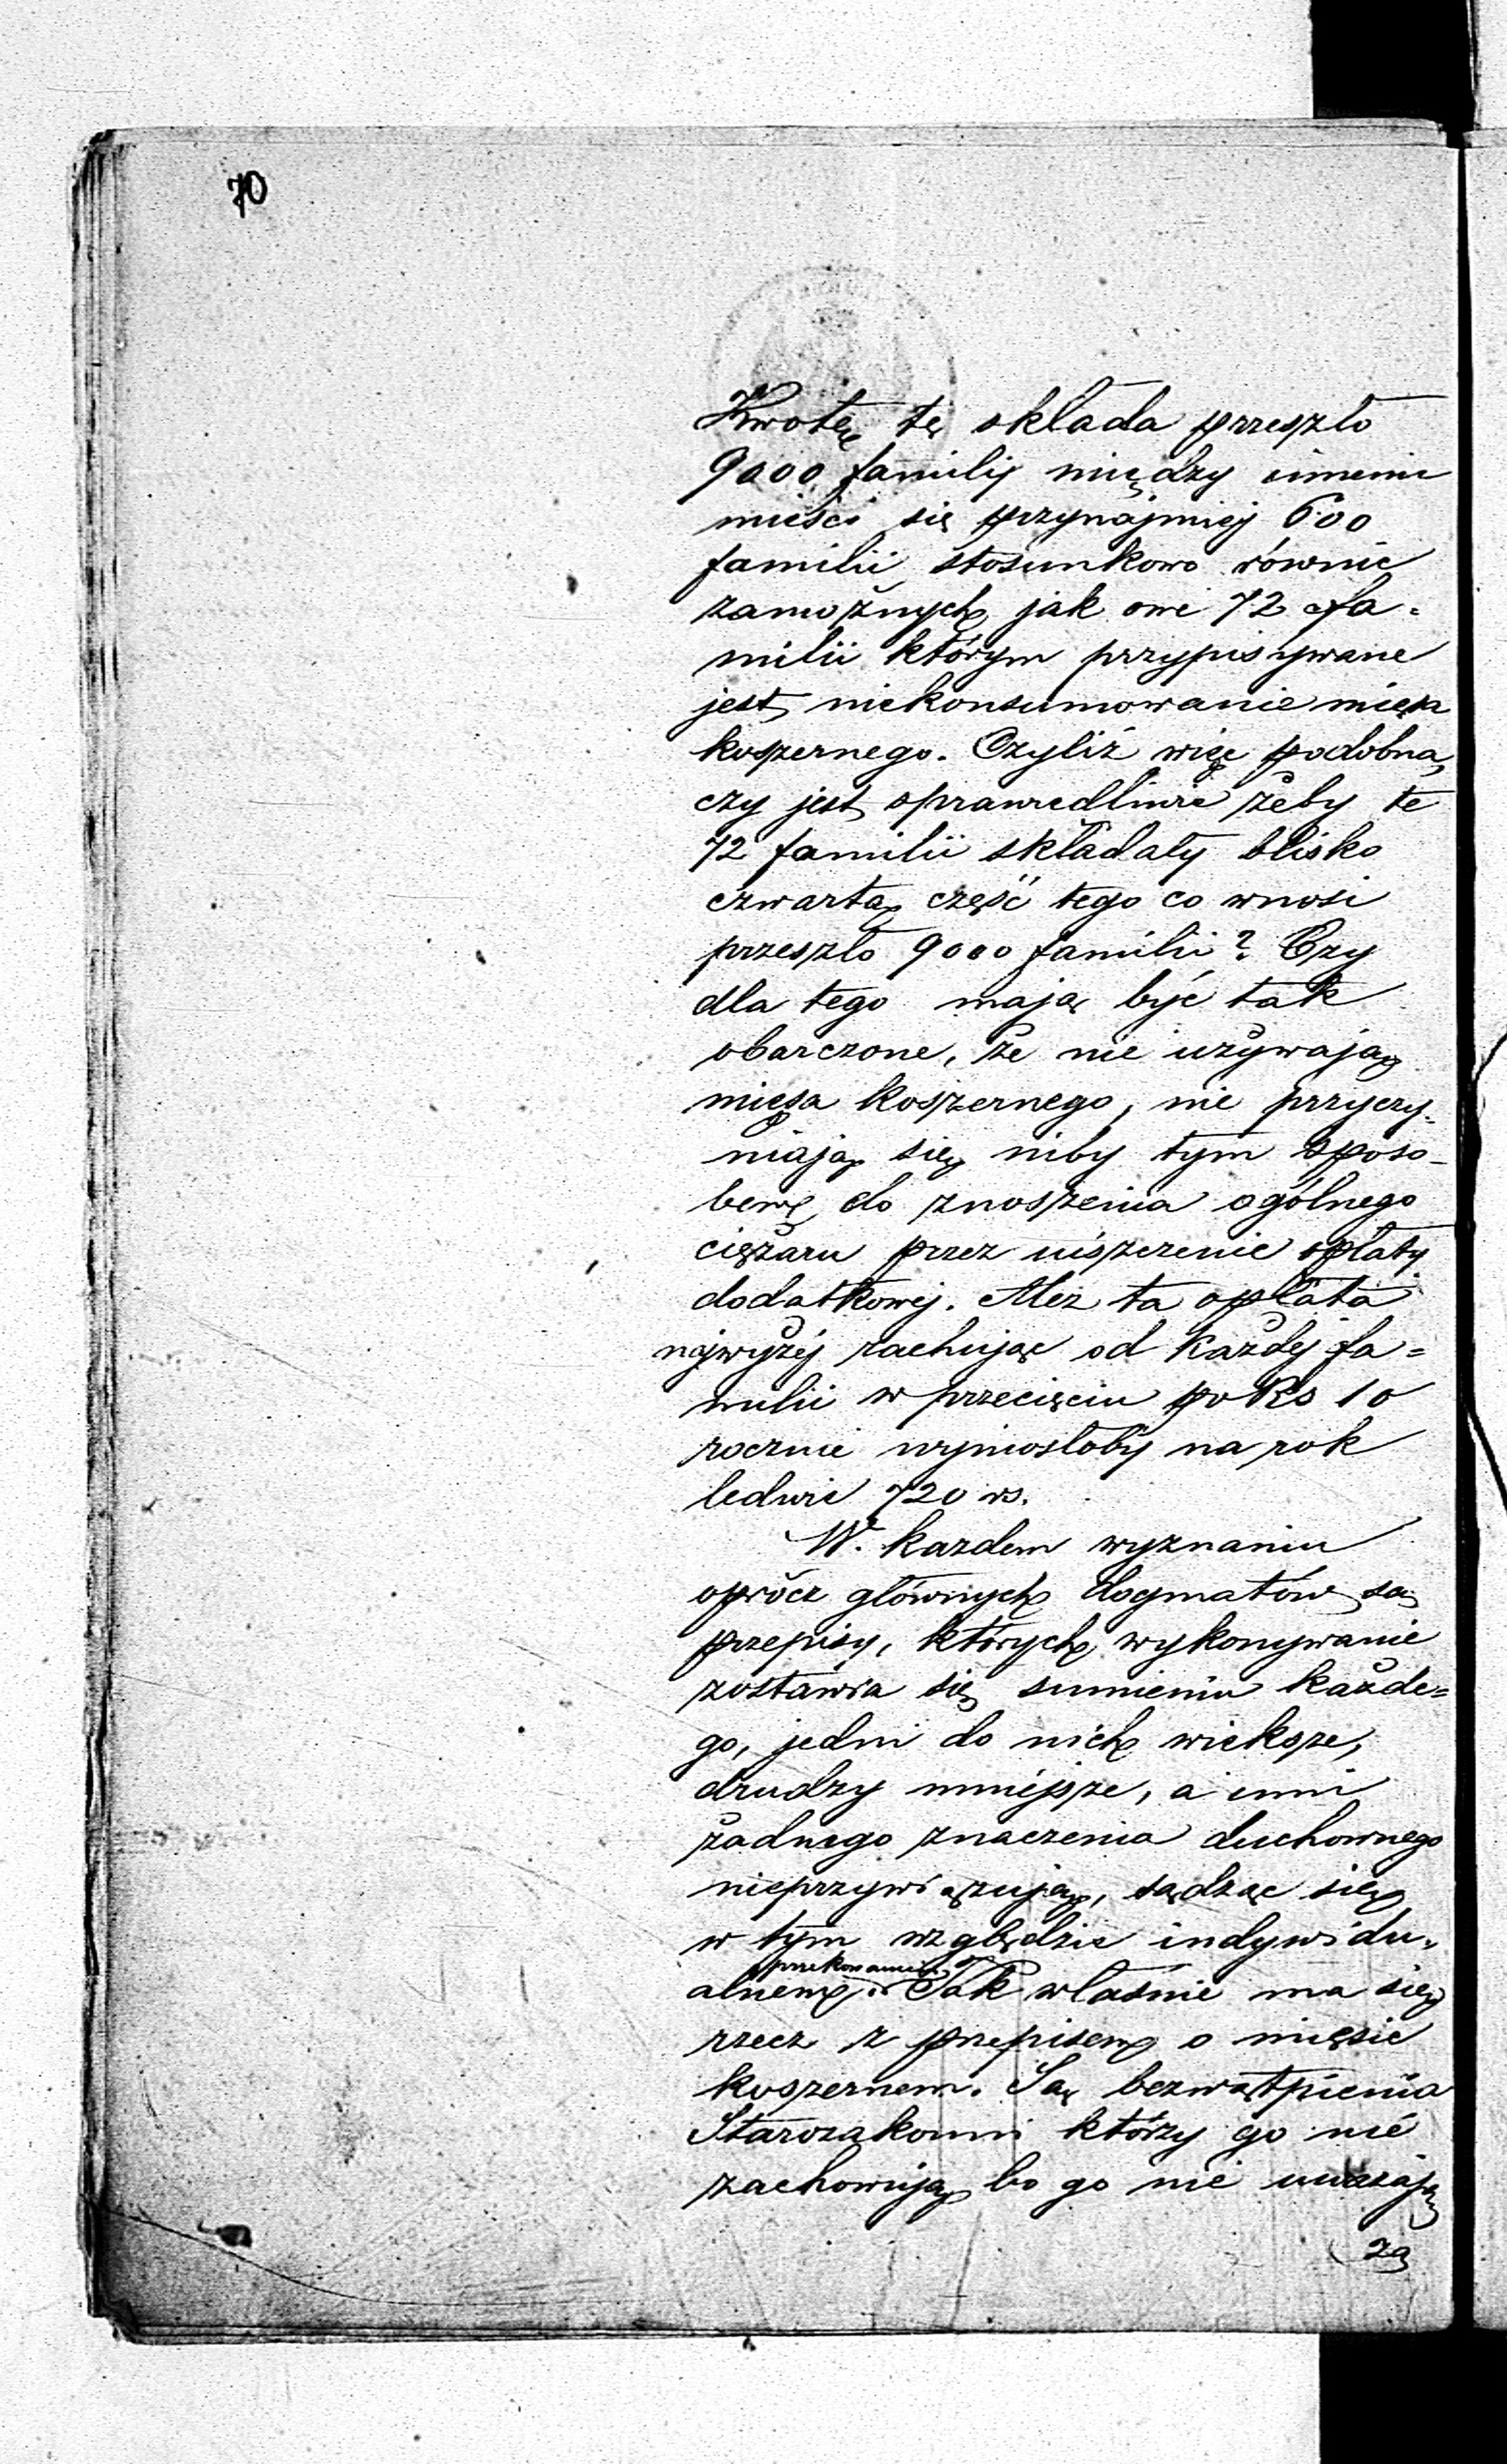 70
Kwotę tę składa przeszło
9000 familij między innemi
mieści się przynajmniej 600
familii stosunkowo równie
zamożnych jak owe 72 fa-
milii którym przypisywane
jest niekonsumowanie mięsa
koszernego. Czyliż więc podobna,
czy jest sprawiedliwie żeby te
72 familii składały blisko
czwartą część tego co wnosi
przeszło 9000 familii? Czy
dla tego mają być tak
obarczone, że nie używają
mięsa koszernego, nie przyczy-
niają się niby tym sposo-
bem do znoszenia ogólnego
ciężaru przez uiszczenie opłaty
dodatkowej. Ależ ta opłata
najwyżej rachując od każdej fa=
milii w przecięciu po Rs 10
rocznie wyniosłoby na rok
ledwie 720 rs.
W. każdem wyznaniu
oprócz głównych dogmatów są
przepisy, których wykonywanie
zostawia się sumieniu każde=
go, jedni do nich wieksze,
drudzy mniejsze, a inni
żadnego znaczenia duchownego
nieprzywiązują, sądząc się
w tym względzie indywidu-
przekonaniem
alnem. Tak właśnie ma się
rzecz z przepisem o mięsie
koszernem. Są bezwątpienia
Starozakonni którzy go nie
zachowują bo go nie uważają
za